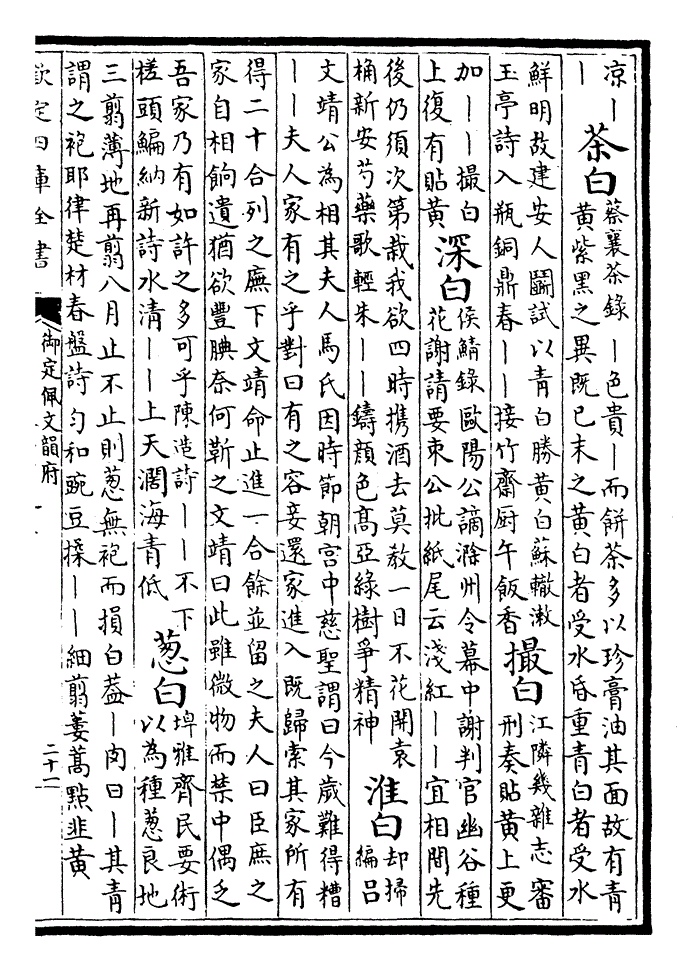 凉丨茶白蔡襄茶錄丨色貴丨而餅茶多以珍膏油其面故有青
丨黄紫黑之異既已末之黄白者受水昏重青白者受水
鮮明故建安人鬭試以青白勝黄白蘇轍漱
玉亭詩入瓶銅鼎春丨丨接竹齋厨午飯香撮白江隣幾雜志審
刑奏貼黄上更
加丨丨撮白深白侯鯖錄歐陽公謫滁州令幕中謝判官幽谷種
花謝請要束公批紙尾云淺紅丨丨宜相間先
上復有貼黄
後仍須次第栽我欲四時携酒去莫教一日不花開袁
桷新安芍藥歌輕朱丨丨鑄顔色髙亞綠樹爭精神淮白却掃
編吕
文靖公為相其夫人馬氏因時節朝宫中慈聖謂曰今歲難得糟
丨丨夫人家有之乎對曰有之容妾還家進入既歸索其家所有
得二十合列之廡下文靖命止進一合餘並留之夫人曰臣庶之
家自相餉遺猶欲豐腆奈何靳之文靖曰此雖微物而禁中偶乏
吾家乃有如許之多可乎陳造詩丨丨不下
槎頭鯿納新詩水清丨丨上天濶海青低葱白埤雅齊民要術
以為種葱良地
三翦薄地再翦八月止不止則葱無袍而損白葢丨肉曰丨其青
謂之袍耶律楚材春盤詩匀和豌豆揉丨丨細翦蔞蒿點韭黄
欽定四庫全書
御定佩文韻府
二十一